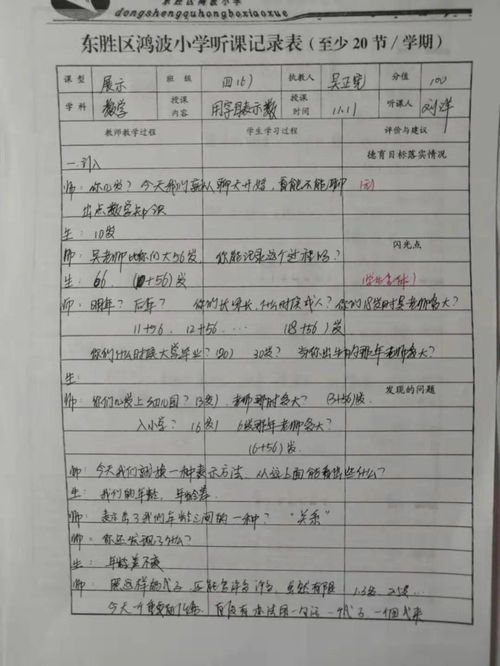 东胜区鸿波小学
dongshengquhongboxiaoxue
东胜区鸿波小学听课记录表(至少20节/学期)
课型 展示 班级 四(6) 执教人 吴正宪 分值 100
学科 数学 授课内容 用字母表示数 授课时间 11.11 听课人 刘洋
教师教学过程 学生学习过程 评价与建议
一.引入 德育目标落实情况
师: 你几岁? 今天我们就从聊天开始, 看能不能聊
出点数学知识
生: 10岁 闪光点
师: 吴老师比你们大56岁, 你能记录这个过程吗?
生: 66. (10+56)岁
师: 明年? 后年? 你们长呀长, 什么时候成人? 你们18岁时吴老师多大?
11+56. 12+56... (18+56)岁
你们什么时候大学毕业? 30岁? 当你出生的那年老师多大?
生: 发现的问题
师: 你们几岁上幼儿园? (3岁). 老师那时多大? (3+56)岁.
入小学? (6岁) 6岁那年老师多大?
(6+56)岁.
师: 今天我们就换一种表示方法. 从这上面能看出些什么?
生: 我们的年龄, 年龄差.
师: 表示了我们年龄之间的一种? "关系"
师: 你还发现了什么?
生: 年龄差不变
师: 照这样的式子, 还能写许多许多,
今天一个重要的任务.